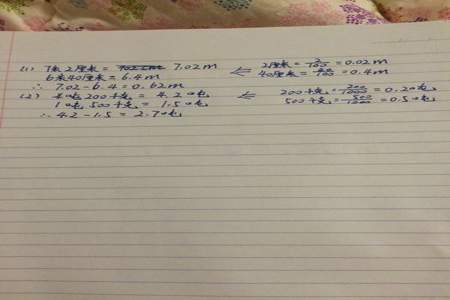 (1) 7米2厘米= 7.02m ⇐ 2厘米=2/100=0.02m
6米40厘米=6.4m 40厘米=40/100=0.4m
∴ 7.02-6.4=0.62m
(2) 4吨200千克=4.2吨 ⇐ 200千克=200/1000=0.2吨
1吨500千克=1.5吨 500千克=500/1000=0.5吨
∴ 4.2-1.5=2.7吨